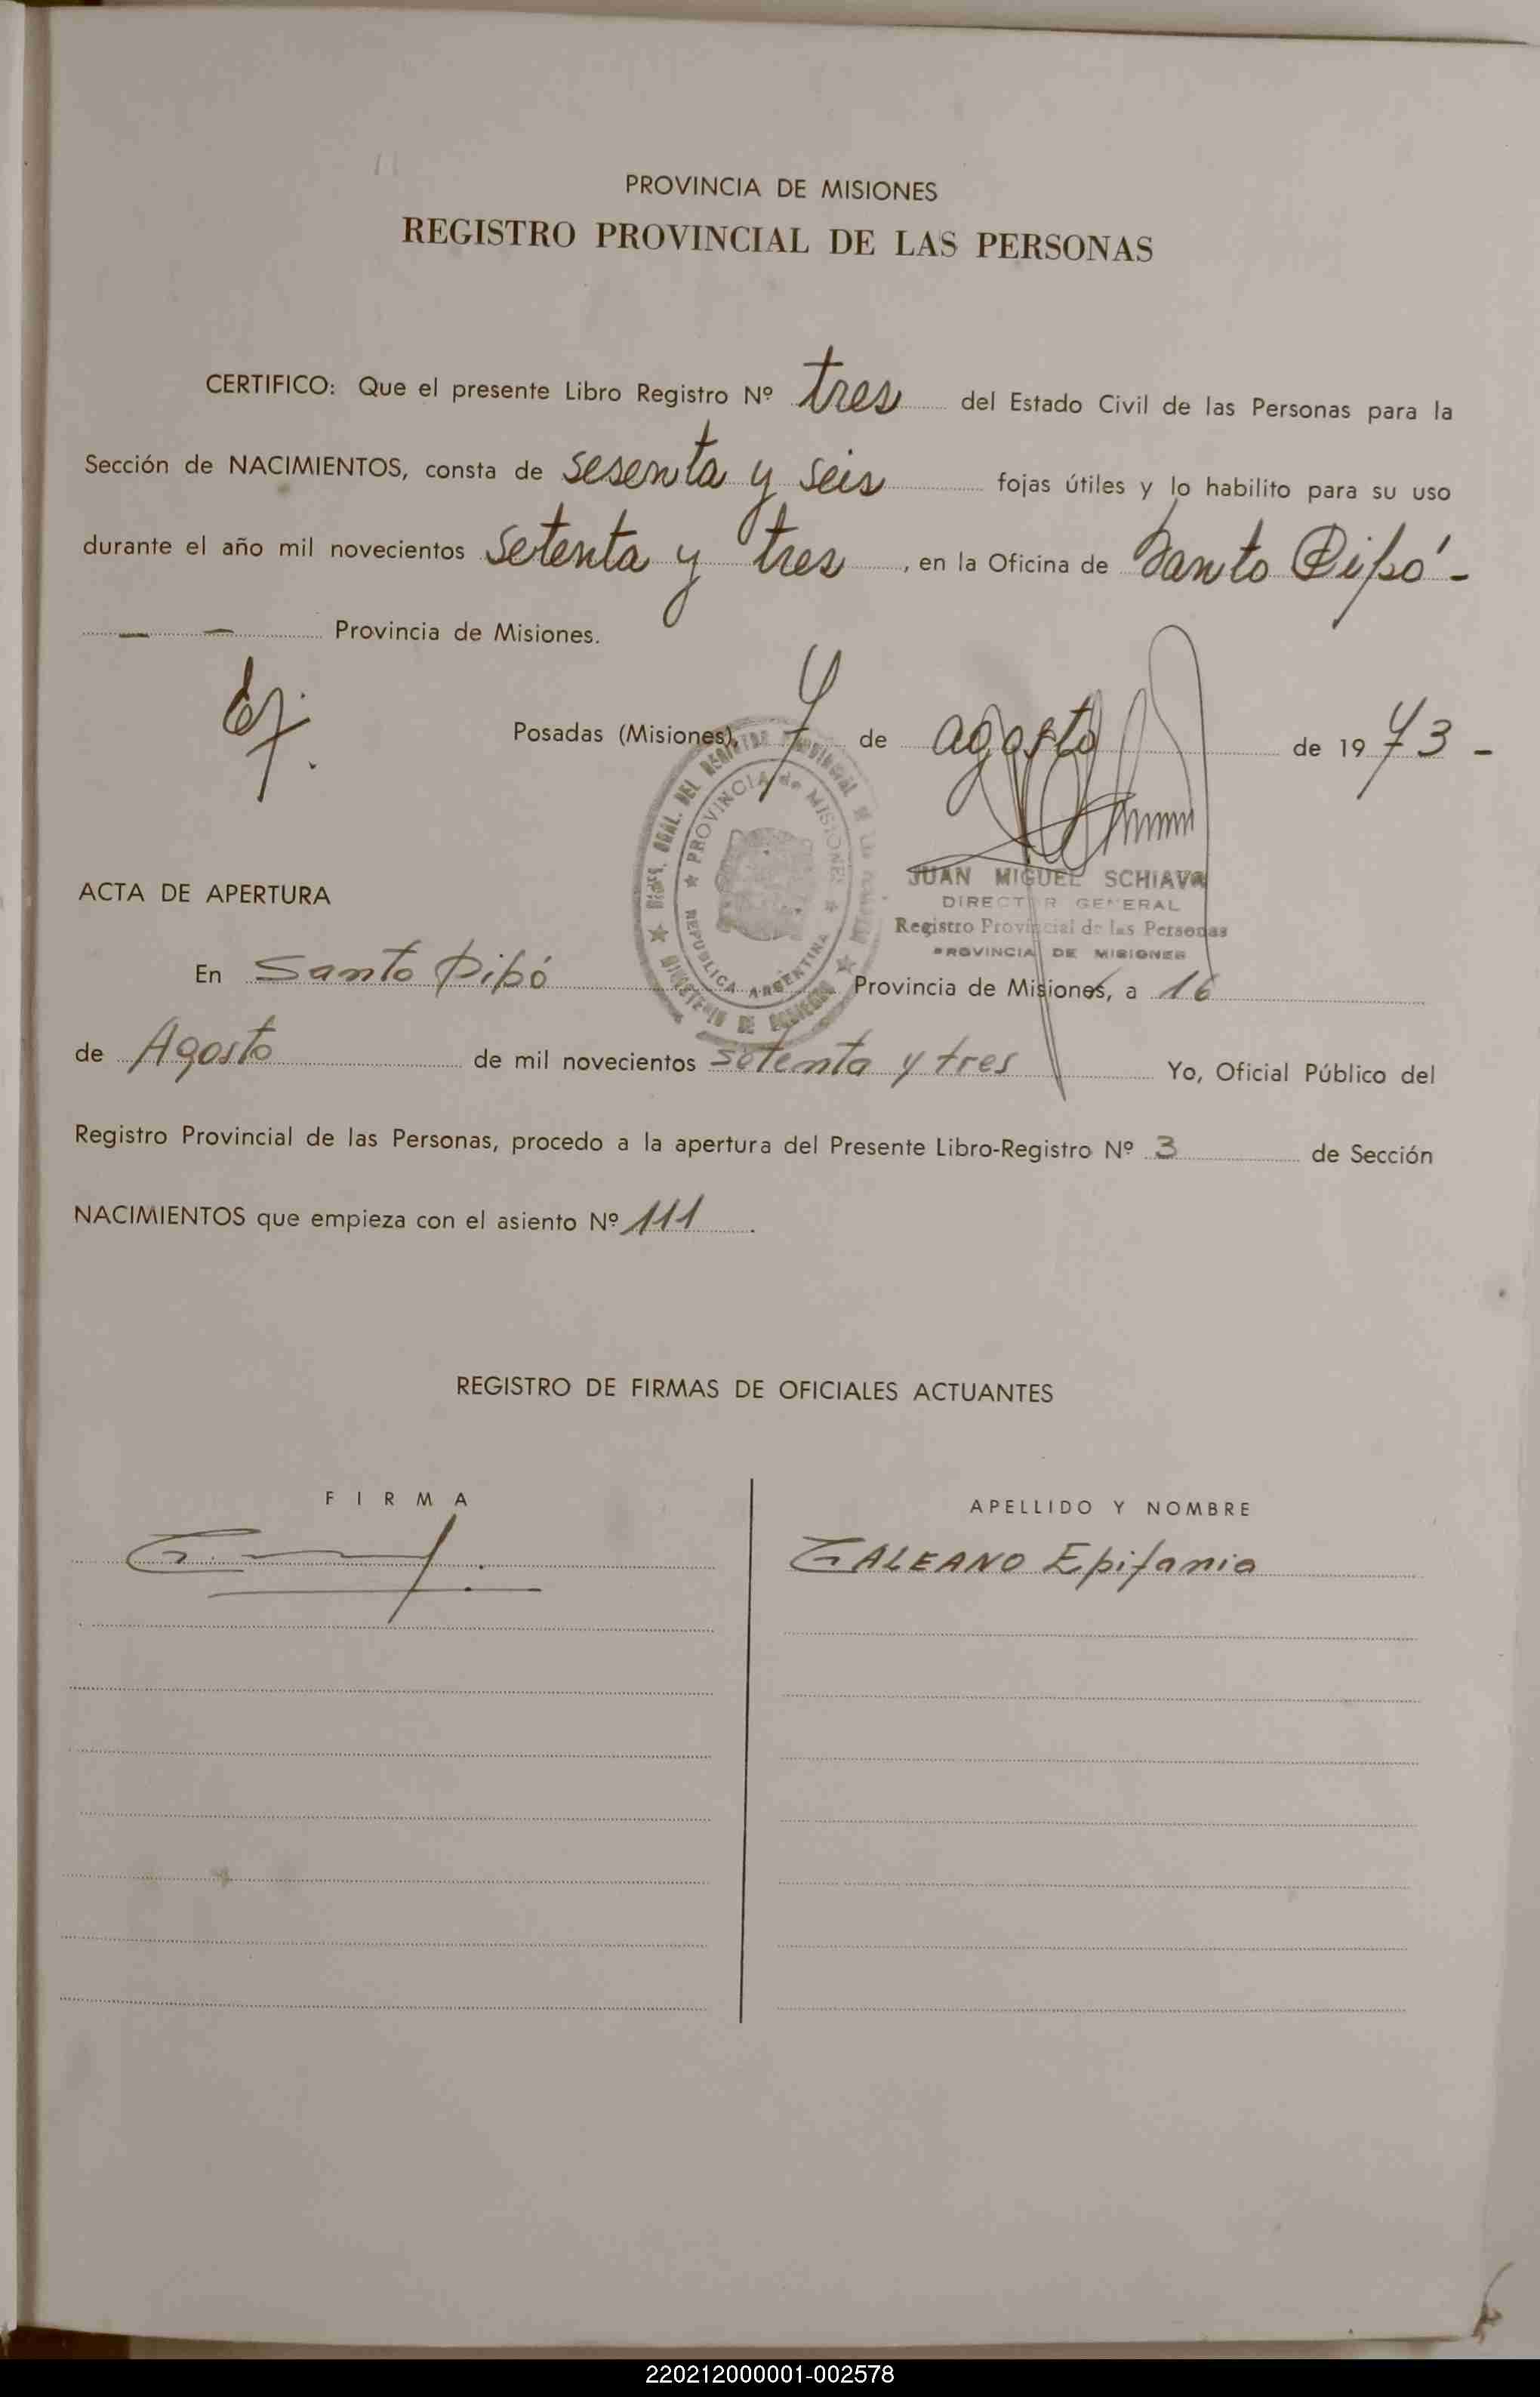 PROVINCIA DE MISIONES
REGISTRO PROVINCIAL DE LAS PERSONAS
CERTIFICO: Que el presente Libro Registro Nº tres del Estado Civil de las Personas para la
Sección de NACIMIENTOS, consta de sesenta y seis fojas útiles y lo habilito para su uso
durante el año mil novecientos setenta y tres, en la Oficina de Santo Pipó -
— — Provincia de Misiones.
Posadas (Misiones), 7 de agosto de 1973 -
DIREC. GRAL. DEL REGISTRO PROVINCIAL DE LAS PERSONAS
PROVINCIA de MISIONES
REPUBLICA ARGENTINA
MINISTERIO DE GOBIERNO
JUAN MIGUEL SCHIAVO
DIRECTOR GENERAL
Registro Provincial de las Personas
PROVINCIA DE MISIONES
ACTA DE APERTURA
En Santo Pipó Provincia de Misiones, a 16
de Agosto de mil novecientos setenta y tres Yo, Oficial Público del
Registro Provincial de las Personas, procedo a la apertura del Presente Libro-Registro Nº 3 de Sección
NACIMIENTOS que empieza con el asiento Nº 111.
REGISTRO DE FIRMAS DE OFICIALES ACTUANTES
FIRMA
APELLIDO Y NOMBRE
GALEANO Epifania
220212000001-002578